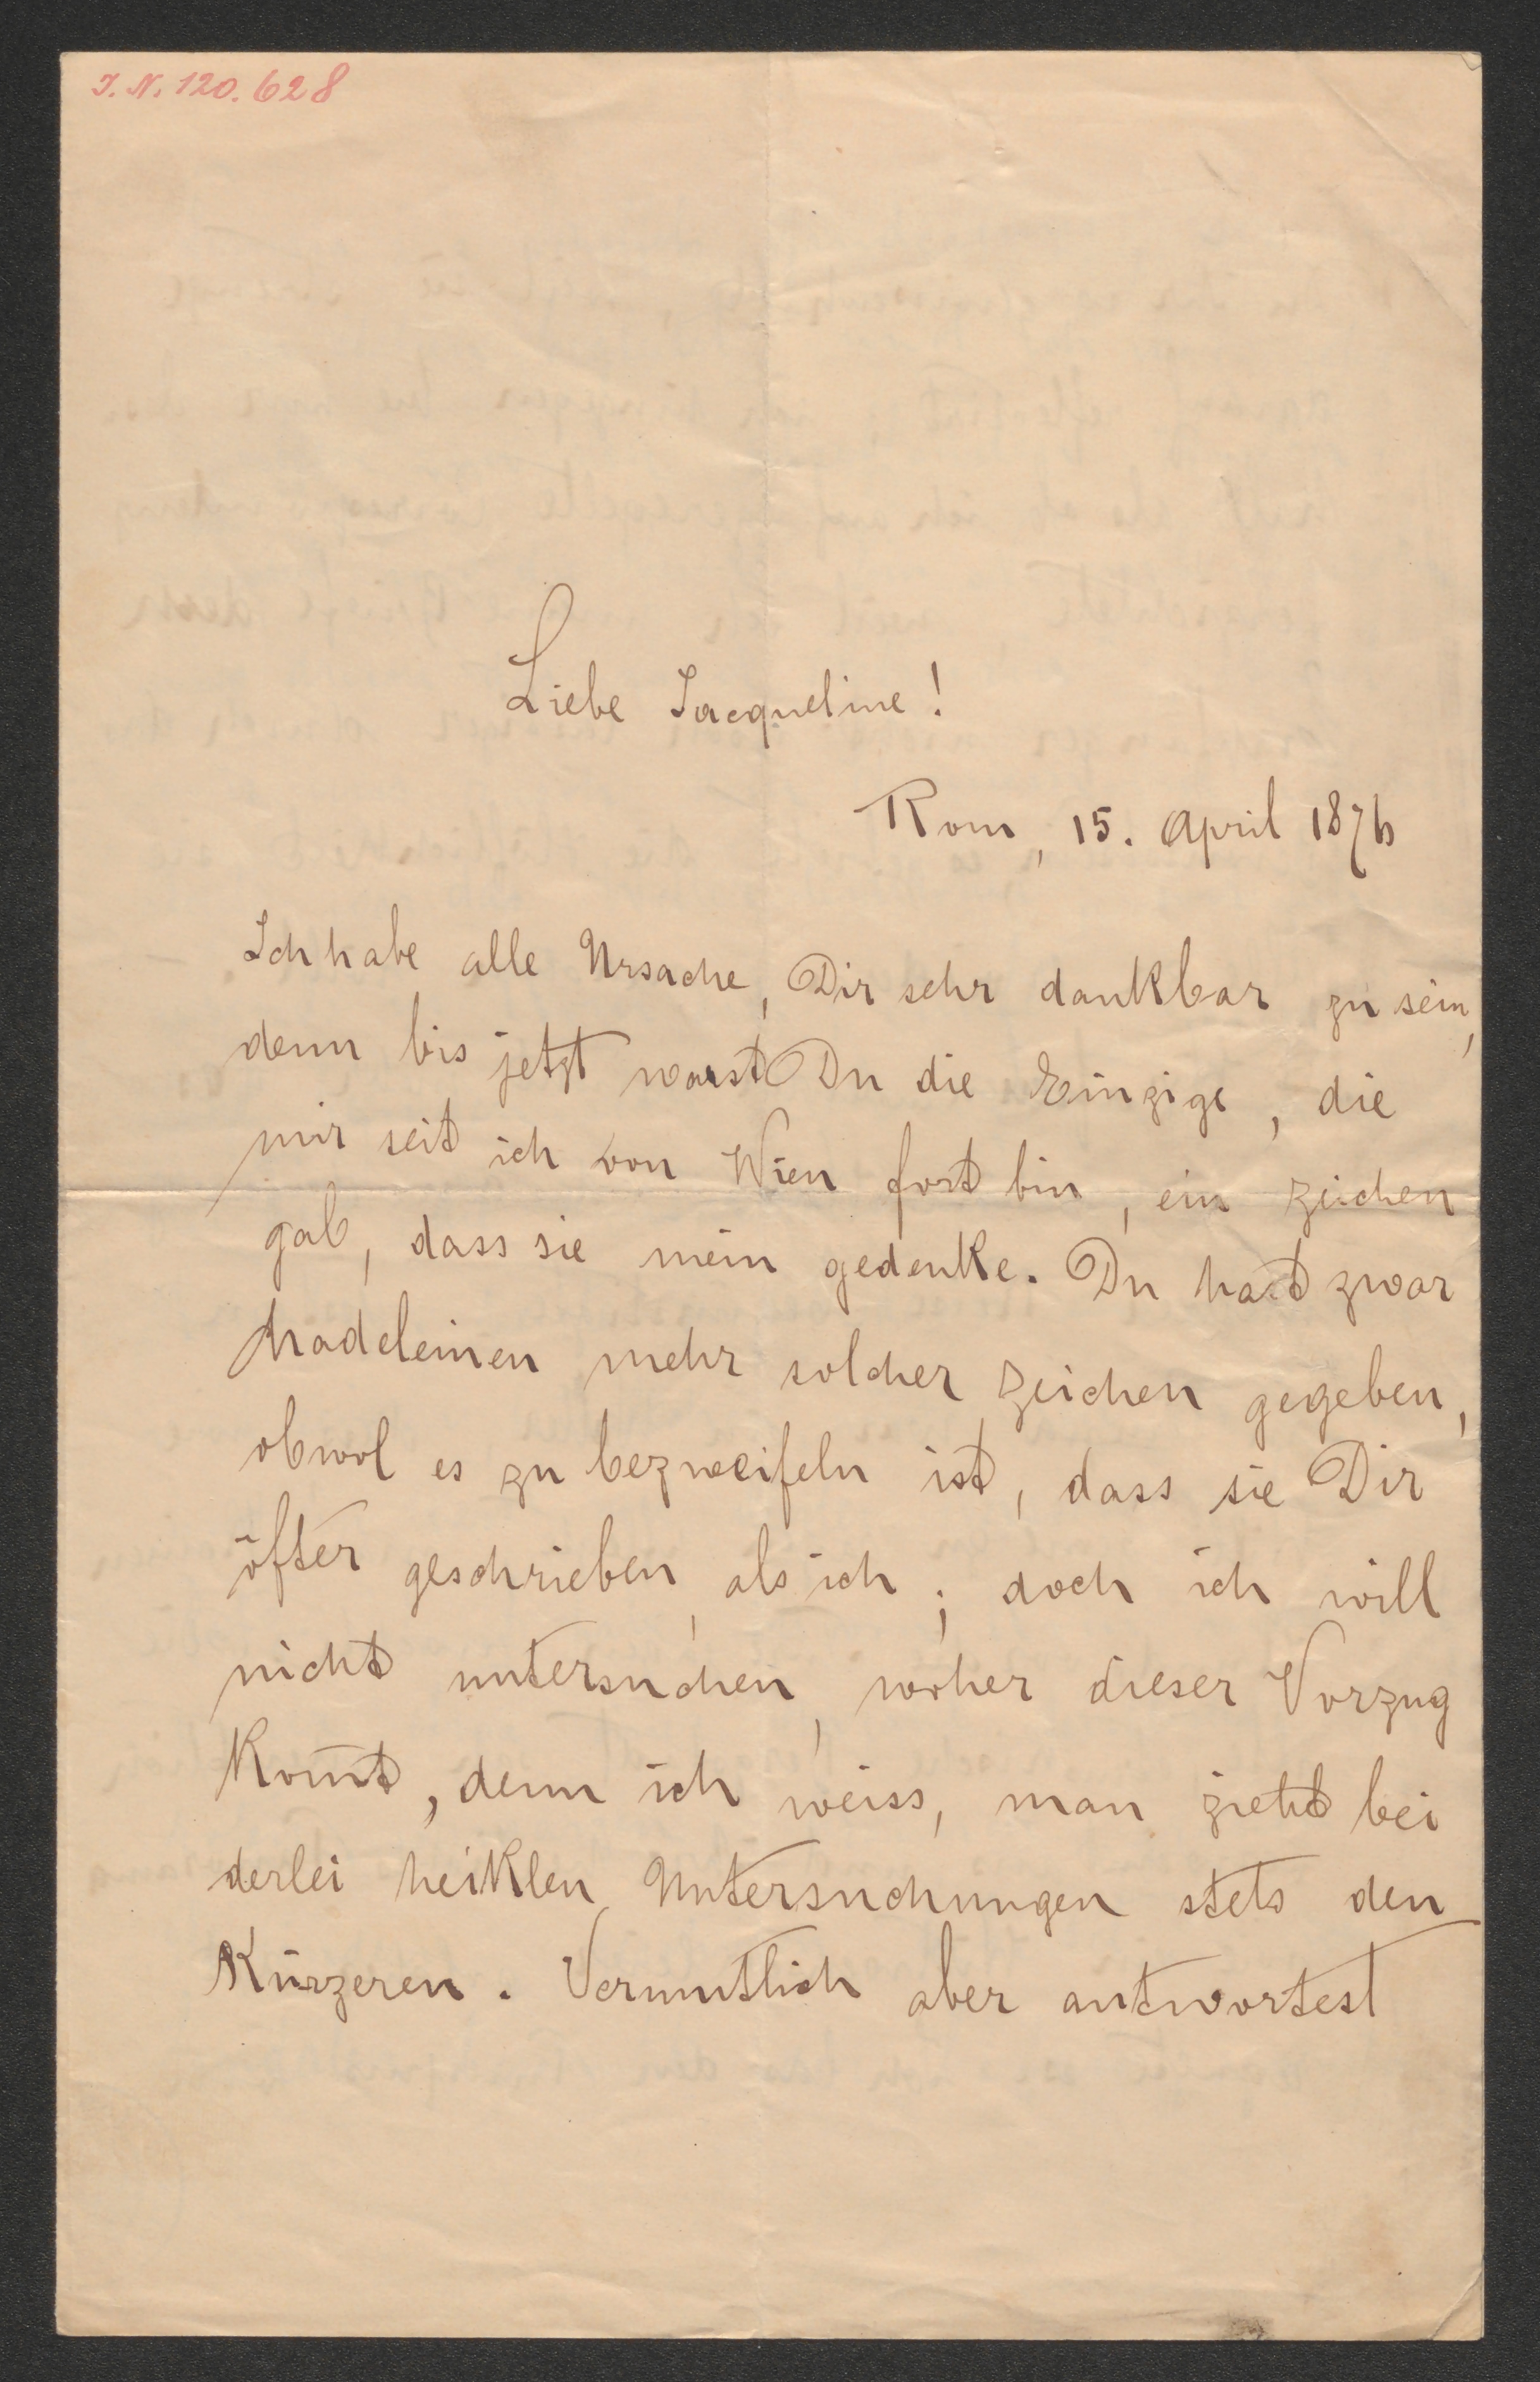 I. N. 120.628
Liebe Jacqueline!
Rom, 15. April 1876
Ich habe alle Ursache, Dir sehr dankbar zu sein,
denn bis jetzt warst Du die Einzige, die
mir seit ich von Wien fort bin, ein Zeichen
gab, dass sie mein gedenke. Du hast zwar
Madeleinen mehr solcher Zeichen gegeben,
obwol es zu bezweifeln ist, dass sie Dir
öfter geschrieben, als ich; doch ich will
nicht untersuchen, woher dieser Vorzug
kom̄t, denn ich weiss, man zieht bei
derlei heiklen Untersuchungen stets den
Kürzeren. Vermutlich aber antwortest